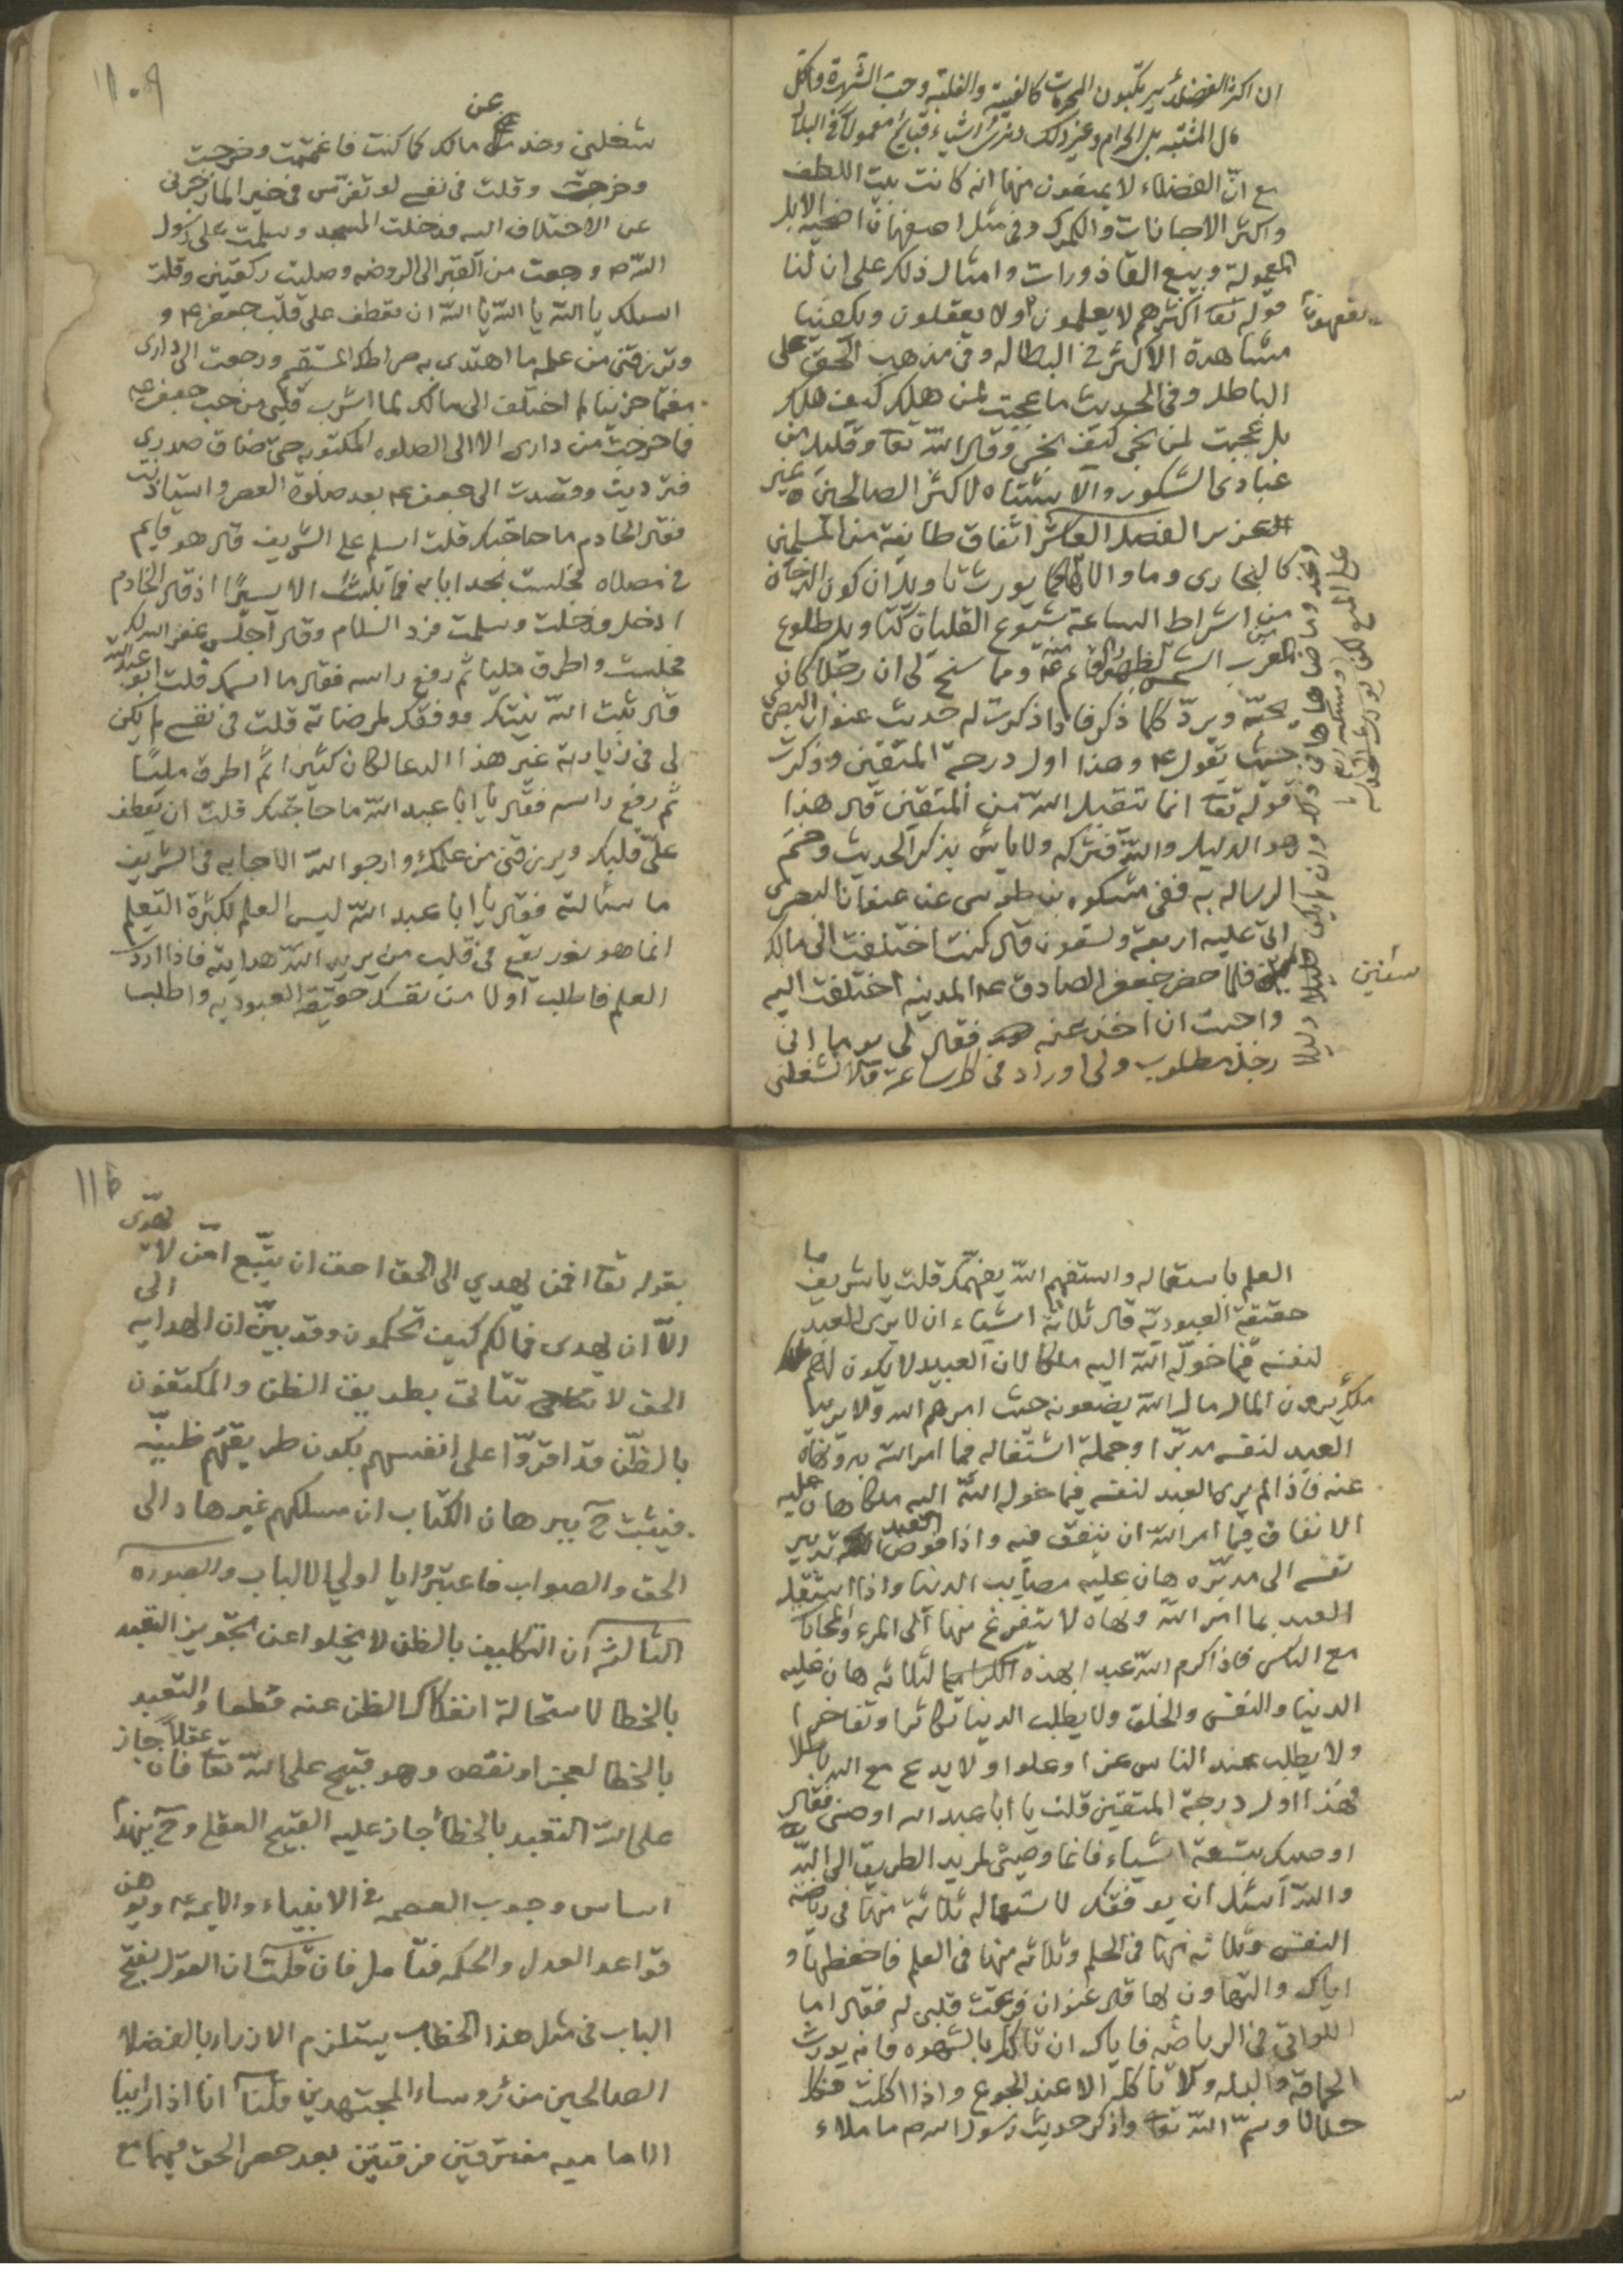 ان اكثر الفضلاء يرتكبون المحرمات كالغيبة والغلبة وحب الشهرة واكل
مال المشتبه بل الحرام وغير ذلك وترى اشياء قبايح معمولة في البلاد
مع ان الفضلاء لا يمنعون منها
واكثر الاجانات والكمرك وفي مثل اصفهان اضحية الابل
المعمولة وبيع القاذورات وامثال ذلك على ان لنا
قوله تعا اكثرهم لا يعلمون او لا يعقلون ويكفينا
يفقهون
مشاهدة الاكثر في البطالة وفي مذهب الحق على
الباطل وفي الحديث ما عجبت لمن هلك كيف هلك
بل عجبت لمن نجى كيف نجى وقال الله تعا وقليل من
عبادي الشكور والاشتباه لاكثر الصالحين غير
العزيز الفصل العاشر اتفاق طايفة من المسلمين
كالبخارى وما والاها يورث تاويل ان كون الدخان
من اشراط الساعة شيوع القليان كتاويل طلوع
الشمس من المغرب ومما سنح لى ان رجلا كان
يحبه ويرد كلما ذكر فاذا ذكرت له حديث عنوان البصرى
حيث يقول ع وهذا اول درجة المتقين وذكرت
قوله تعا انما يتقبل الله من المتقين قال هذا
هو الدليل والله فتركه ولا باس بذكر الحديث وختم
الرسالة به ففي مشكوه بن طوسى عن عنوان البصرى
اتى عليه اربعة وتسعون قال كنت اختلفت الى مالك
سنين
فلما حضر جعفر الصادق ع المدينه اختلفت اليه
واحببت ان اخذ عنه فقال لى يوما انى
رجل مطلوب ولى اوراد فى كل ساعة فلا تشغلنى
١٠٩
عن
شغلنى وخذ مالك كما كنت فاغتممت وخرجت
وخرجت وقلت فى نفسى لو تفرس فى خير الما زجرنى
عن الاختلاف اليه فدخلت المسجد وسلمت على رسول
الله ص ورجعت من القبر الى الروضه وصليت ركعتين وقلت
اسئلك يا الله يا الله يا الله ان تعطف على قلب جعفر ع و
وترزقنى من علمه ما اهتدى به صراطك المستقيم ورجعت الى دارى
مغتما حزينا لم اختلف الى مالك لما اشرب قلبى من حب جعفر ع
فما خرجت من دارى الا الى الصلوه المكتوبه حتى ضاق صدرى
فترديت وقصدت الى جعفر ع بعد صلوة العصر واستاذنت
فقال الخادم ما حاجتك قلت اسلم على الشريف قال هو قايم
فى مصلاه فجلست بحدا بابه فما لبثت الا يسيرا اذ قال الخادم
ادخل فدخلت وسلمت فرد السلام وقال اجلس غفر الله لك
فجلست واطرق مليا ثم رفع راسه فقال ما اسمك قلت ابو عبد الله
قال ثبت الله نيتك ووفقك لمرضاته قلت فى نفسى لم يكن
لى فى زيارته غير هذا الدعا لكان كثيرا ثم اطرق مليا
ثم رفع راسه فقال يا ابا عبد الله ما حاجتك قلت ان يعطف
على قلبك ويرزقنى من علمك وارجو الله الاجابه فى الشريف
ما سئالته فقال يا ابا عبد الله ليس العلم بكثرة التعلم
انما هو نور يقع فى قلب من يريد الله هدايته فاذا اردت
العلم فاطلب اولا من نفسك حقيقة العبوديه واطلب
العلم باستعماله واستفهم الله يفهمك قلت يا شريف ما
حقيقة العبودية قال ثلاثة اشياء ان لا يرى العبد
لنفسه فيما خوله الله اليه ملكا لان العبيد لا يكون لهم
ملك يرون المال مال الله يضعونه حيث امرهم الله ولا يدبر
العبد لنفسه مدبرا وجملة اشتغاله فيما امر الله به ونهاه
عنه فاذا لم يرى العبد لنفسه فيما خوله الله اليه ملكا هان عليه
الانفاق فيما امر الله ان ينفق فيه واذا فوض العبد تدبير
نفسه الى مدبره هان عليه مصايب الدنيا واذا اشتغل
العبد بما امر الله ونهاه لا يتفرغ منها الى المرء والمحابا
مع الناس فاذا كرم الله عبدا بهذه الثلاثه هان عليه
الدنيا والنفس والخلق ولا يطلب الدنيا تكاثرا وتفاخرا
ولا يطلب عند الناس عزا وعلوا ولا يدع باطلا
فهذا اول درجة المتقين قلت يا ابا عبد الله اوصنى فقال
اوصيك بتسعة اشياء فانها وصيتى لمريد الطريق الى الله
والله اسئل ان يوفقك لاستعماله ثلاثة منها فى رياضه
النفس وثلاثه منها فى الحلم وثلاثه منها فى العلم فاحفظها و
اياك والتهاون لها قال عنوان ففرغت قلبى له فقال اما
اللواتى فى الرياضه فاياك ان تاكل بالشهوه فانه يورث
الحماقه والبله ولا تاكل الا عند الجوع واذا اكلت فكل
حلالا وسم الله تعا واذكر حديث رسول الله ص ما ملاء
١١٥
بقوله تعا افمن يهدي الى الحق احق ان يتبع امن لا يهدى
الا ان يهدى فما لكم كيف تحكمون وقد بين ان الهدايه الى
الحق لا تتاتى بطريق الظن والمكتفون
بالظن قد اقروا على انفسهم بكون طريقتهم ظنيه
فيثبت ح ببرهان الكتاب ان مسلكهم غير هاد الى
الحق والصواب فاعتبروا يا اولي الالباب والصورة
الثالثة ان التكليف بالظن لا يخلوا عن تجويز التعبد
بالخطا لاستحالة انفكاك الظن عنه قطعا والتعبد
بالخطا لعجز او نقص وهو قبيح على الله تعا فان جاز عقلا
على الله التعبد بالخطأ جاز عليه القبيح العقلي وح ينهدم
اساس وجوب العصمه فى الانبياء والايمه ع ويوهن
قواعد العدل والحكمه فتامل فان قلت ان القول بفتح
الباب فى مثل هذا الخطاب يستلزم الازراء بالفضلا
الصالحين من رؤساء المجتهدين قلنا انا اذا راينا
الاماميه مفترقين فرقتين بعد حصر الحق فيهما مع